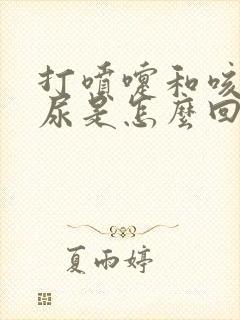 打噴嚏和咳
尿是怎麼回
夏雨婷